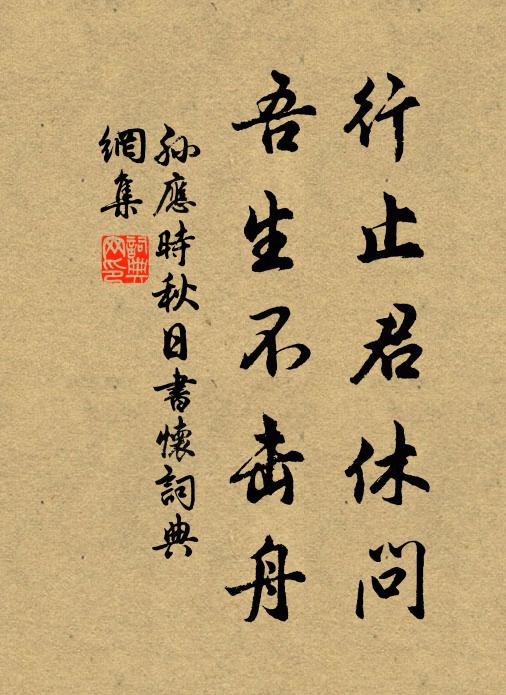 行止君休問
吾生不击舟
孙應時秋日書懷詞典
網集
詞典
网印